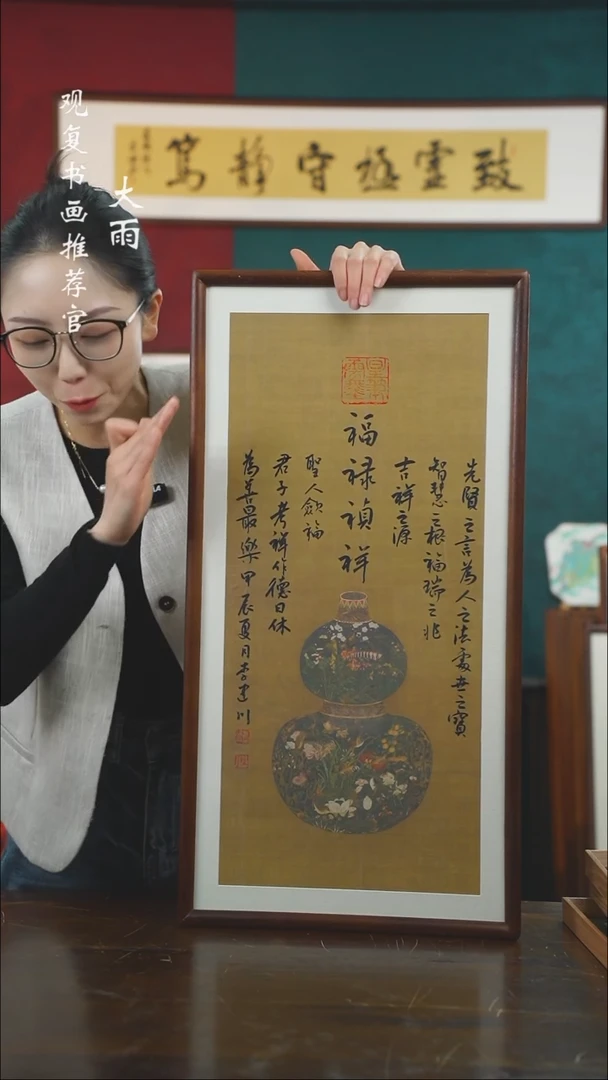 观复书画推荐官
大雨
致虚极守静笃
福禄祯祥
先贤之言為人之法處世之寶
智慧之根福瑞之兆
吉祥之源
聖人歛福
君子考祥作德日休
為善最樂甲辰夏月李建川